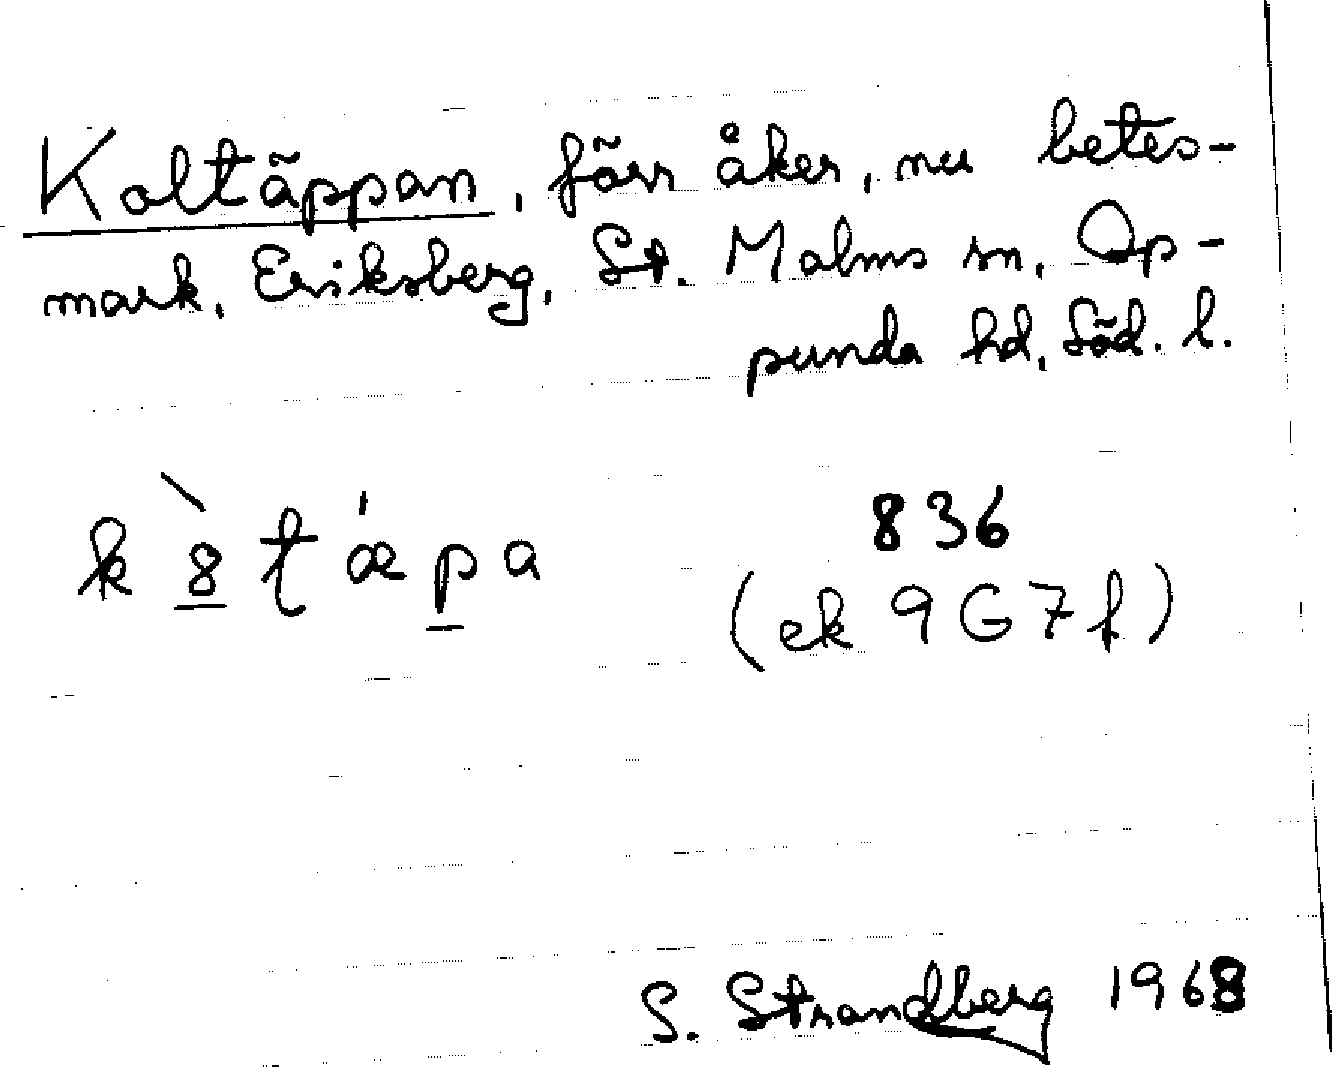 Koltäppan, förr åker, nu betes-
mark. Eriksberg, St. Malms sn, Op-
punda hd, Söd. l.
k 8̀ t ǽ p a
836
(ek 9G7f)
S. Strandberg 1968